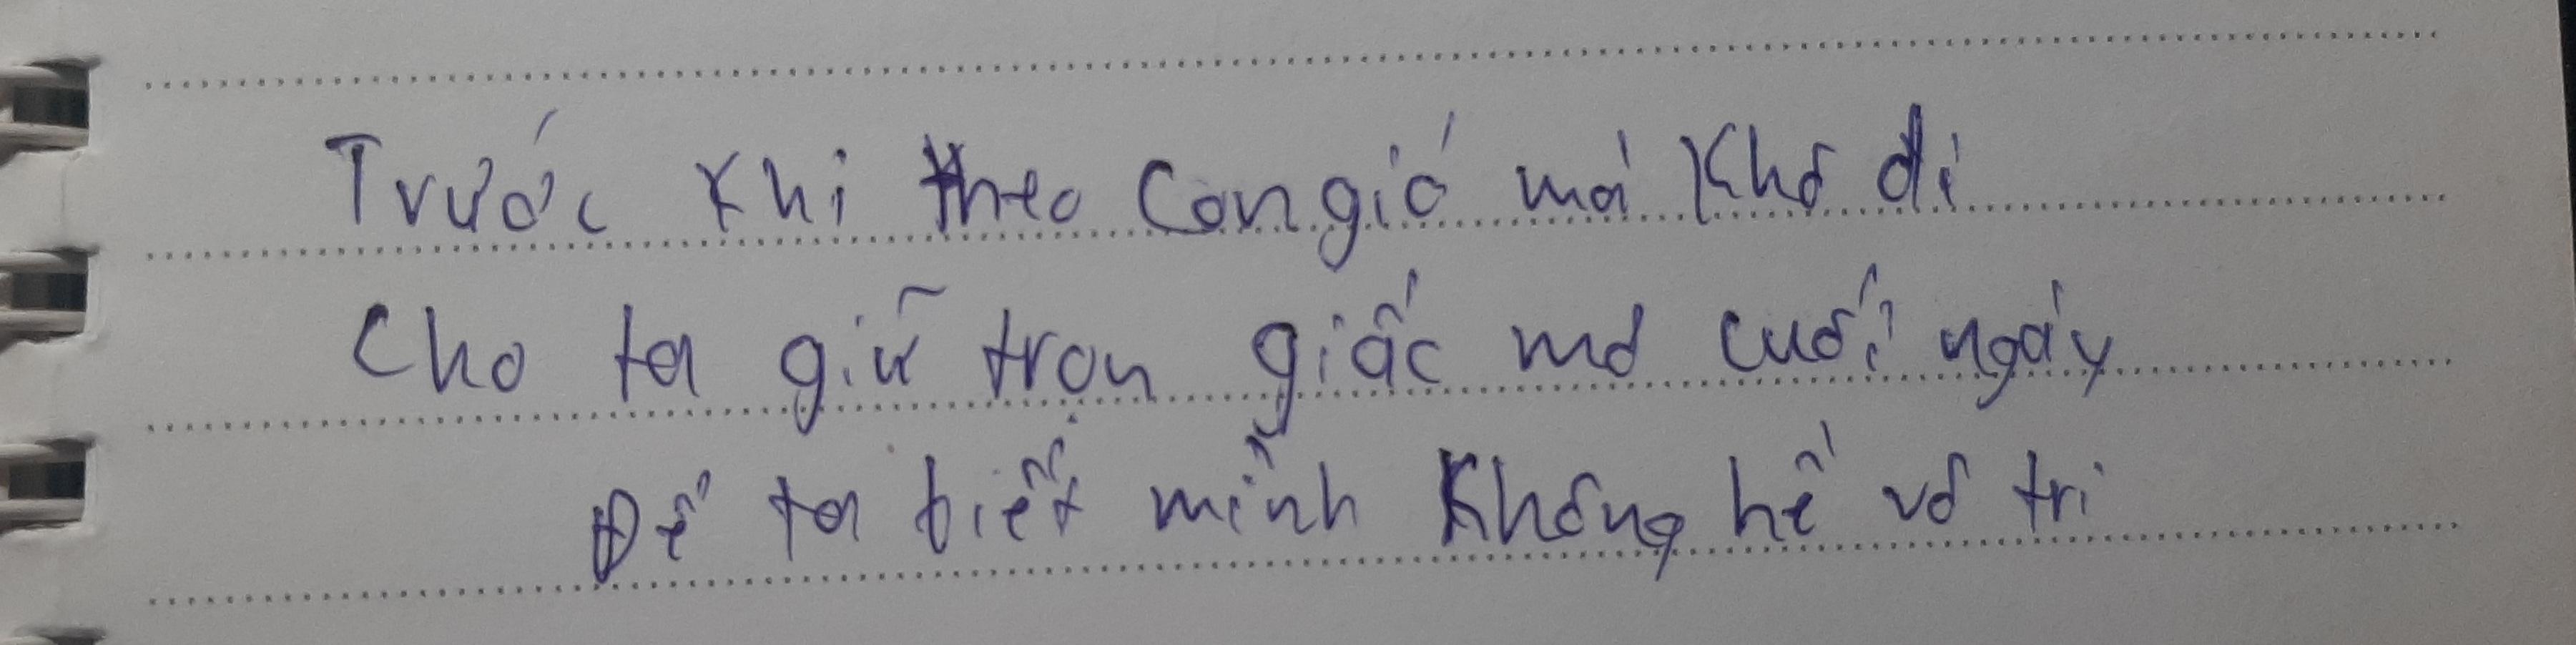 Trước khi theo con gió mà khô đi
Cho ta giữ trọn giấc mơ cuối ngày
Để ta biết mình không hề vô tri